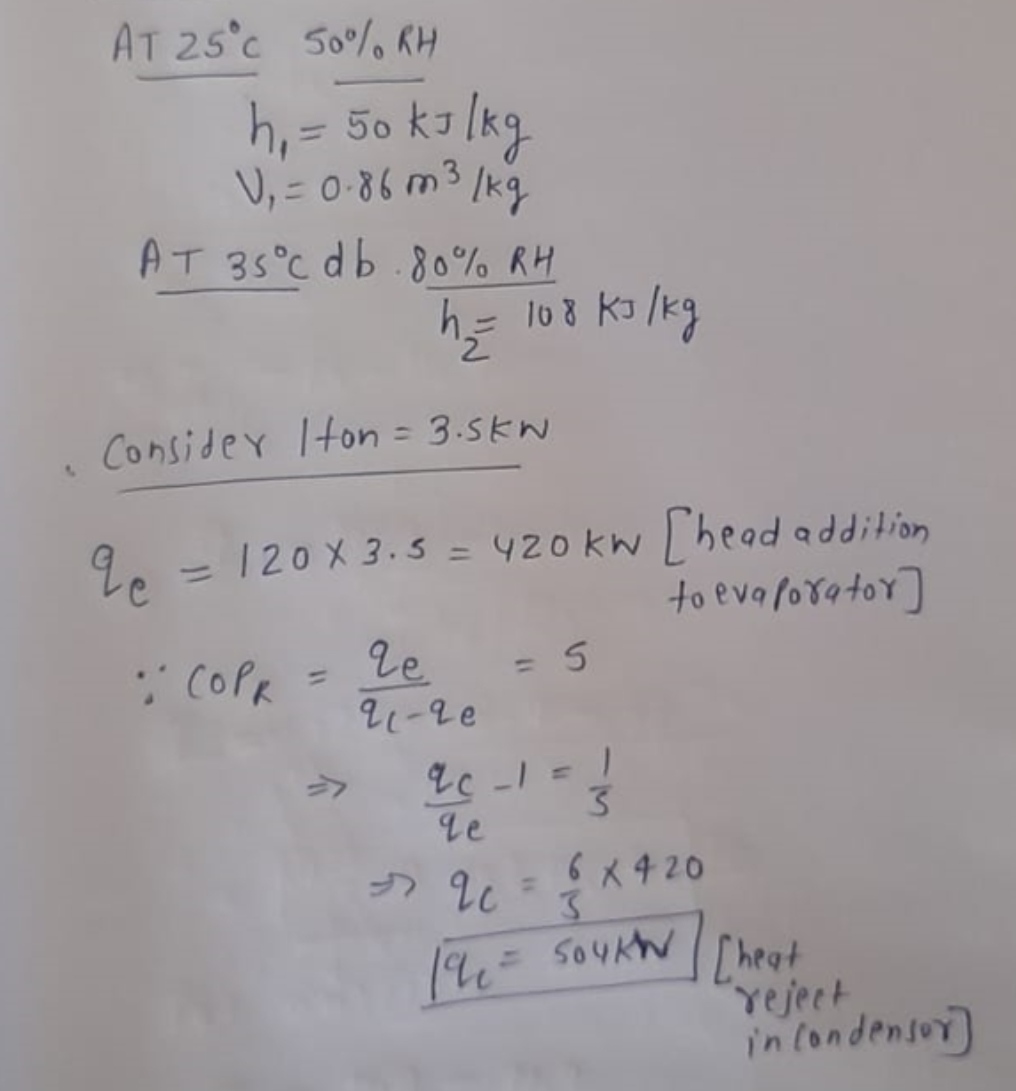 AT 25°C 50% RH
h₁ = 50 kJ/kg
V₁ = 0.86 m³/kg
AT 35°C db . 80% RH
h₂ = 108 kJ/kg
Consider 1ton = 3.5kW
qe = 120 X 3.5 = 420 kW [head addition
to evaporator]
∵ COPR = qe / (qc-qe) = 5
=> qc/qe - 1 = 1/5
=> qc = 6/5 X 420
qc = 504kW [heat
reject
in condensor]